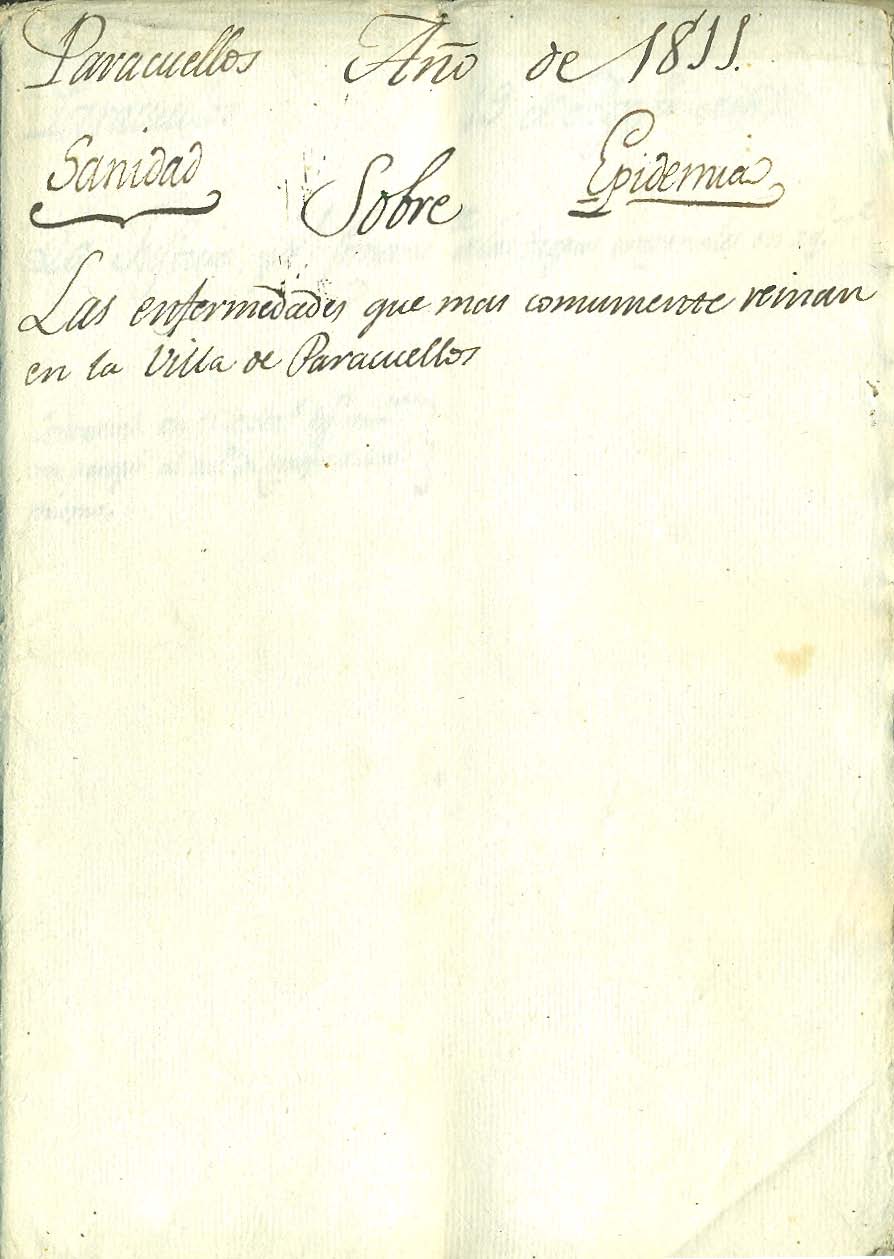 Paracuellos Año de 1811.
Sanidad Sobre Epidemia
Las enfermedades que mas comumente reinan
en la Villa de Paracuellos